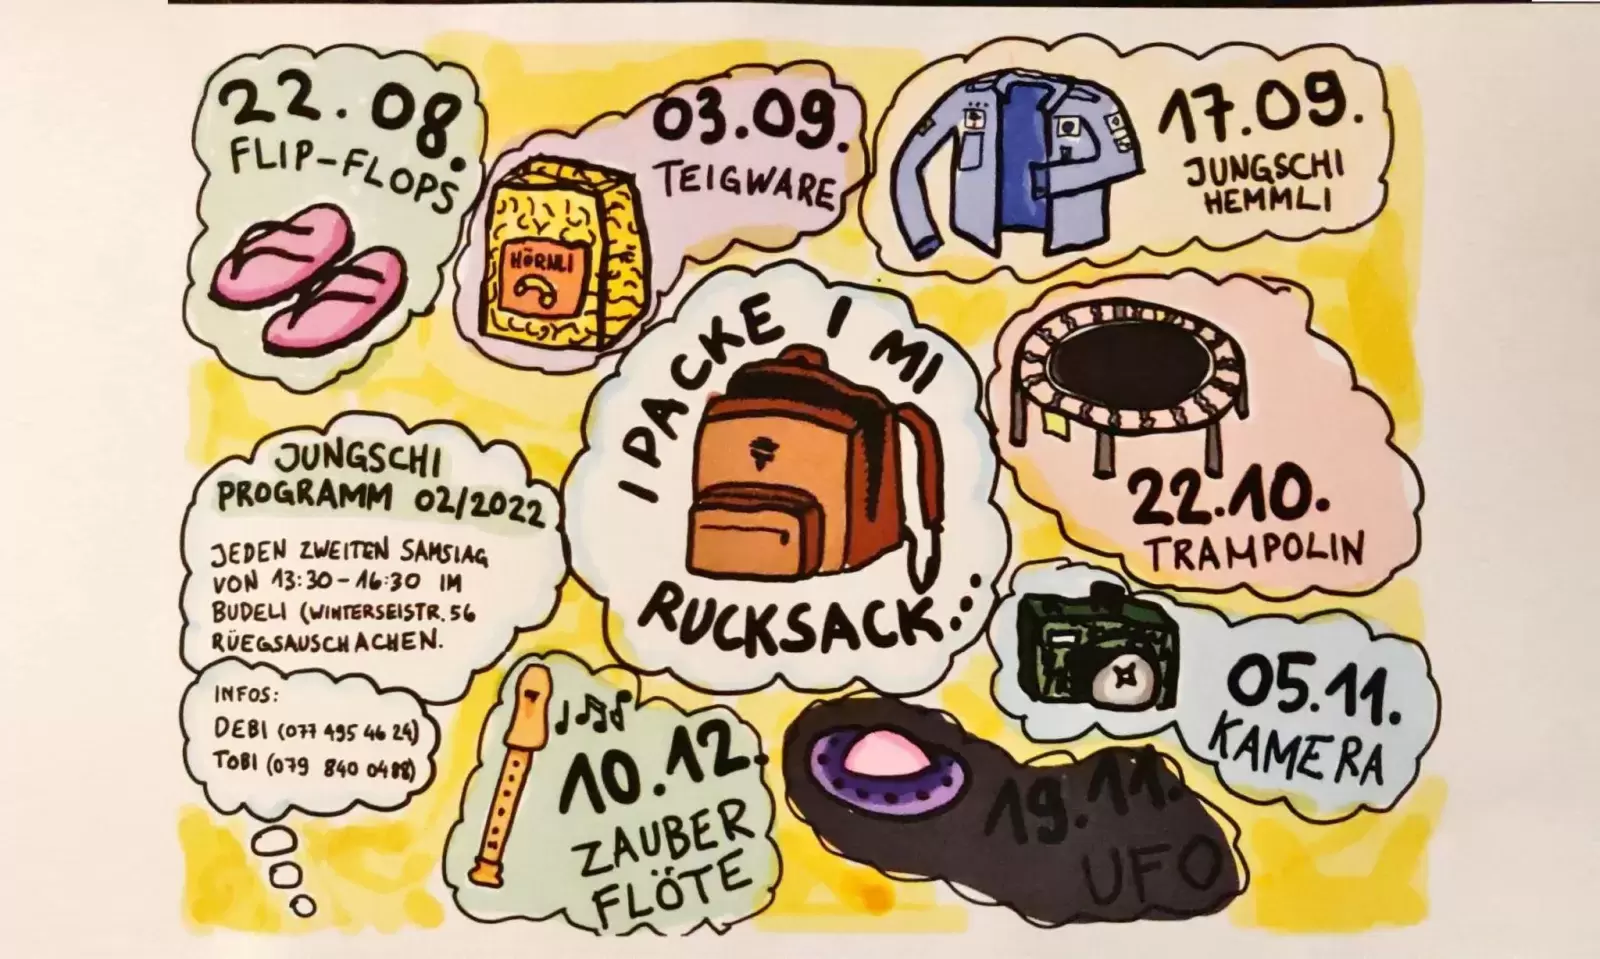 22.08.
FLIP-FLOPS
03.09.
TEIGWARE
HÖRNLI
17.09.
JUNGSCHI
HEMMLI
I PACKE I MI
RUCKSACK...
22.10.
TRAMPOLIN
JUNGSCHI
PROGRAMM 02/2022
JEDEN ZWEITEN SAMSTAG
VON 13:30-16:30 IM
BUDELI (WINTERSEISTR. 56
RÜEGSAUSCHACHEN.
INFOS:
DEBI (077 495 46 24)
TOBI (079 840 04 88)
05.11.
KAMERA
10.12.
ZAUBER
FLÖTE
19.11.
UFO